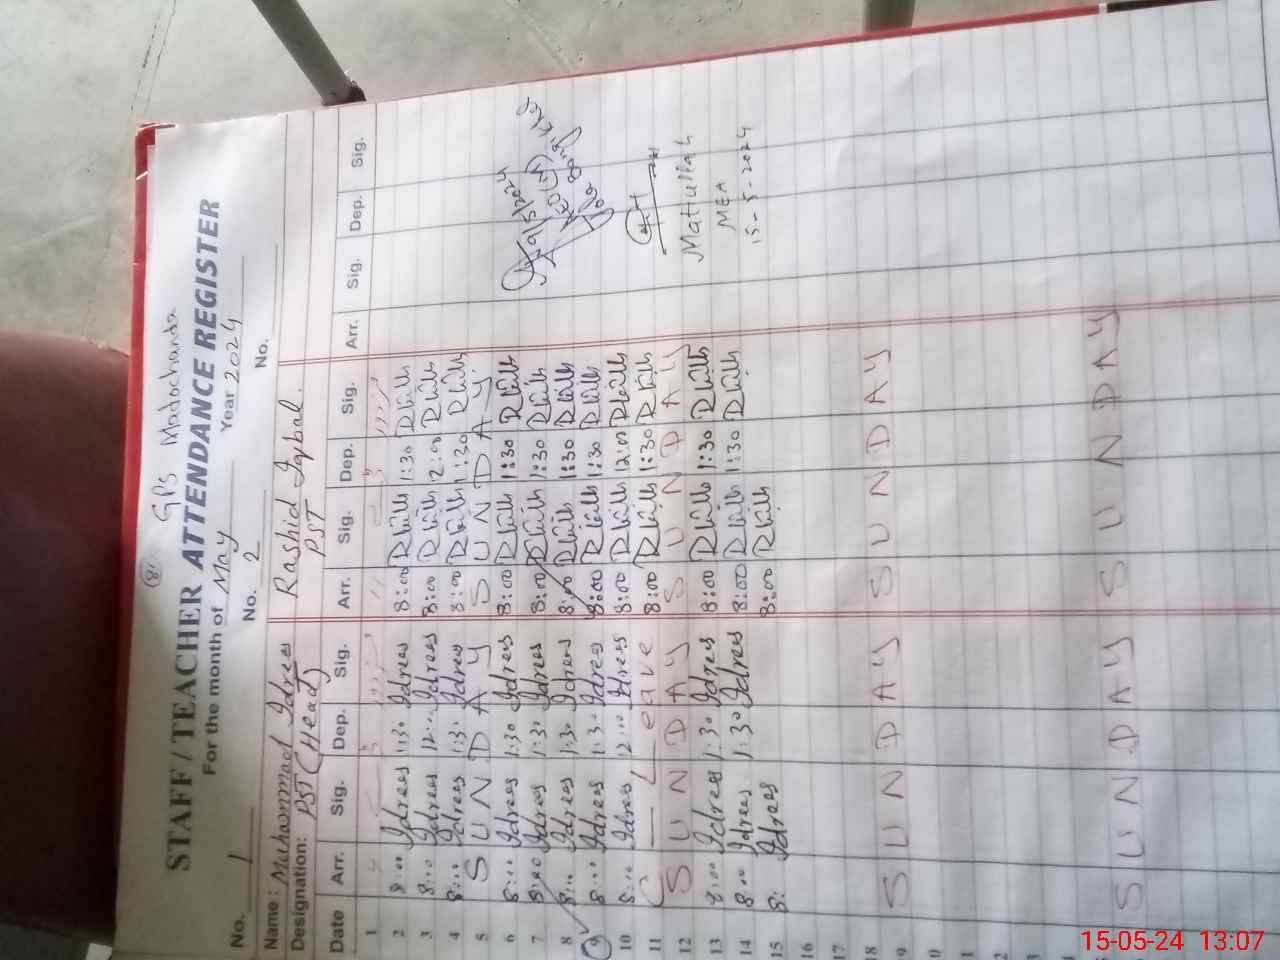 (8)
GPS Madochanda
STAFF / TEACHER ATTENDANCE REGISTER
For the month of May Year 2024
No. 1 No. 2 No.
Name : Muhammad Idrees Rashid Iqbal.
Designation: PST (Head) PST
Date Arr. Sig. Dep. Sig. Arr. Sig. Dep. Sig. Arr. Sig. Dep. Sig.
1
2 8:00 Idrees 1:30 Idrees 8:00 1:30
3 8:00 Idrees 12:00 Idrees 8:00 12:00
4 8:00 Idrees 1:30 Idrees 8:00 1:30
5 S U N D A Y S U N D A Y
6 8:00 Idrees 1:30 Idrees 8:00 1:30
7 8:00 Idrees 1:30 Idrees 8:00 1:30
8 8:00 Idrees 1:30 Idrees 8:00 1:30
9 8:00 Idrees 1:30 Idrees 8:00 1:30
10 8:00 Idrees 12:00 Idrees 8:00 12:00
11 Leave 8:00 1:30
12 S U N D A Y S U N D A Y
13 8:00 Idrees 1:30 Idrees 8:00 1:30
14 8:00 Idrees 1:30 Idrees 8:00 1:30
15 8: Idrees 8:00
16
17
18
19 S U N D A Y S U N D A Y
S U N D A Y S U N D A Y
9/5/2024
Matiullah
MEA
15-5-2024
15-05-24 13:07